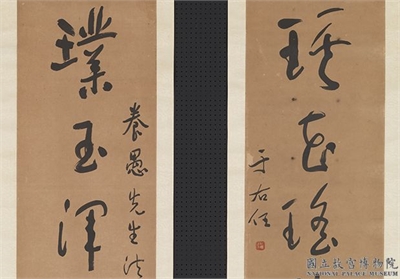 琪花瑤
于右任
養愚先生法
璞玉渾
國立故宮博物院
NATIONAL PALACE MUSEUM